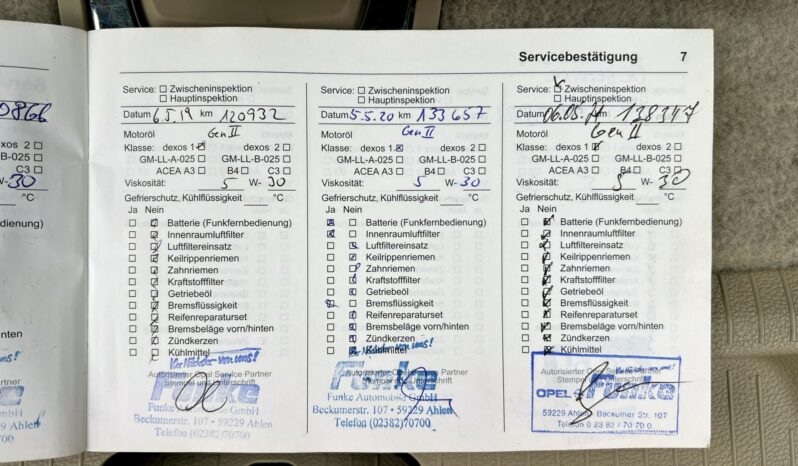 Servicebestätigung 7
0866
exos 2
B-025
C3
W-30
nten
artner
mbH
Ahlen
0
Service: Zwischeninspektion
Hauptinspektion
Datum 6.5.19 km 120932
Motoröl Gen II
Klasse: dexos 1 dexos 2
GM-LL-A-025 GM-LL-B-025
ACEA A3 B4 C3
Viskosität: 5 W- 30
Gefrierschutz, Kühlflüssigkeit °C
Ja Nein
Batterie (Funkfernbedienung)
Innenraumluftfilter
Luftfiltereinsatz
Keilrippenriemen
Zahnriemen
Kraftstofffilter
Getriebeöl
Bremsflüssigkeit
Reifenreparaturset
Bremsbeläge vorn/hinten
Zündkerzen
Kühlmittel
Autorisierter Opel Service Partner
Stempel und Unterschrift
Funke
Funke Automobile GmbH
Beckumerstr. 107 • 59229 Ahlen
Telefon (02382)70700
Service: Zwischeninspektion
Hauptinspektion
Datum 5.5.20 km 133657
Motoröl Gen II
Klasse: dexos 1 dexos 2
GM-LL-A-025 GM-LL-B-025
ACEA A3 B4 C3
Viskosität: 5 W- 30
Gefrierschutz, Kühlflüssigkeit °C
Ja Nein
Batterie (Funkfernbedienung)
Innenraumluftfilter
Luftfiltereinsatz
Keilrippenriemen
Zahnriemen
Kraftstofffilter
Getriebeöl
Bremsflüssigkeit
Reifenreparaturset
Bremsbeläge vorn/hinten
Zündkerzen
Kühlmittel
Autorisierter Opel Service Partner
Stempel und Unterschrift
Funke
Funke Automobile GmbH
Beckumerstr. 107 • 59229 Ahlen
Telefon (02382)70700
Service: Zwischeninspektion
Hauptinspektion
Datum 06.05. km 138347
Motoröl Gen II
Klasse: dexos 1 dexos 2
GM-LL-A-025 GM-LL-B-025
ACEA A3 B4 C3
Viskosität: 5 W- 30
Gefrierschutz, Kühlflüssigkeit °C
Ja Nein
Batterie (Funkfernbedienung)
Innenraumluftfilter
Luftfiltereinsatz
Keilrippenriemen
Zahnriemen
Kraftstofffilter
Getriebeöl
Bremsflüssigkeit
Reifenreparaturset
Bremsbeläge vorn/hinten
Zündkerzen
Kühlmittel
Autorisierter Opel Service Partner
Stempel und Unterschrift
OPEL Funke
59229 Ahlen Beckumer Str. 107
Telefon 0 23 82 / 70 70 0